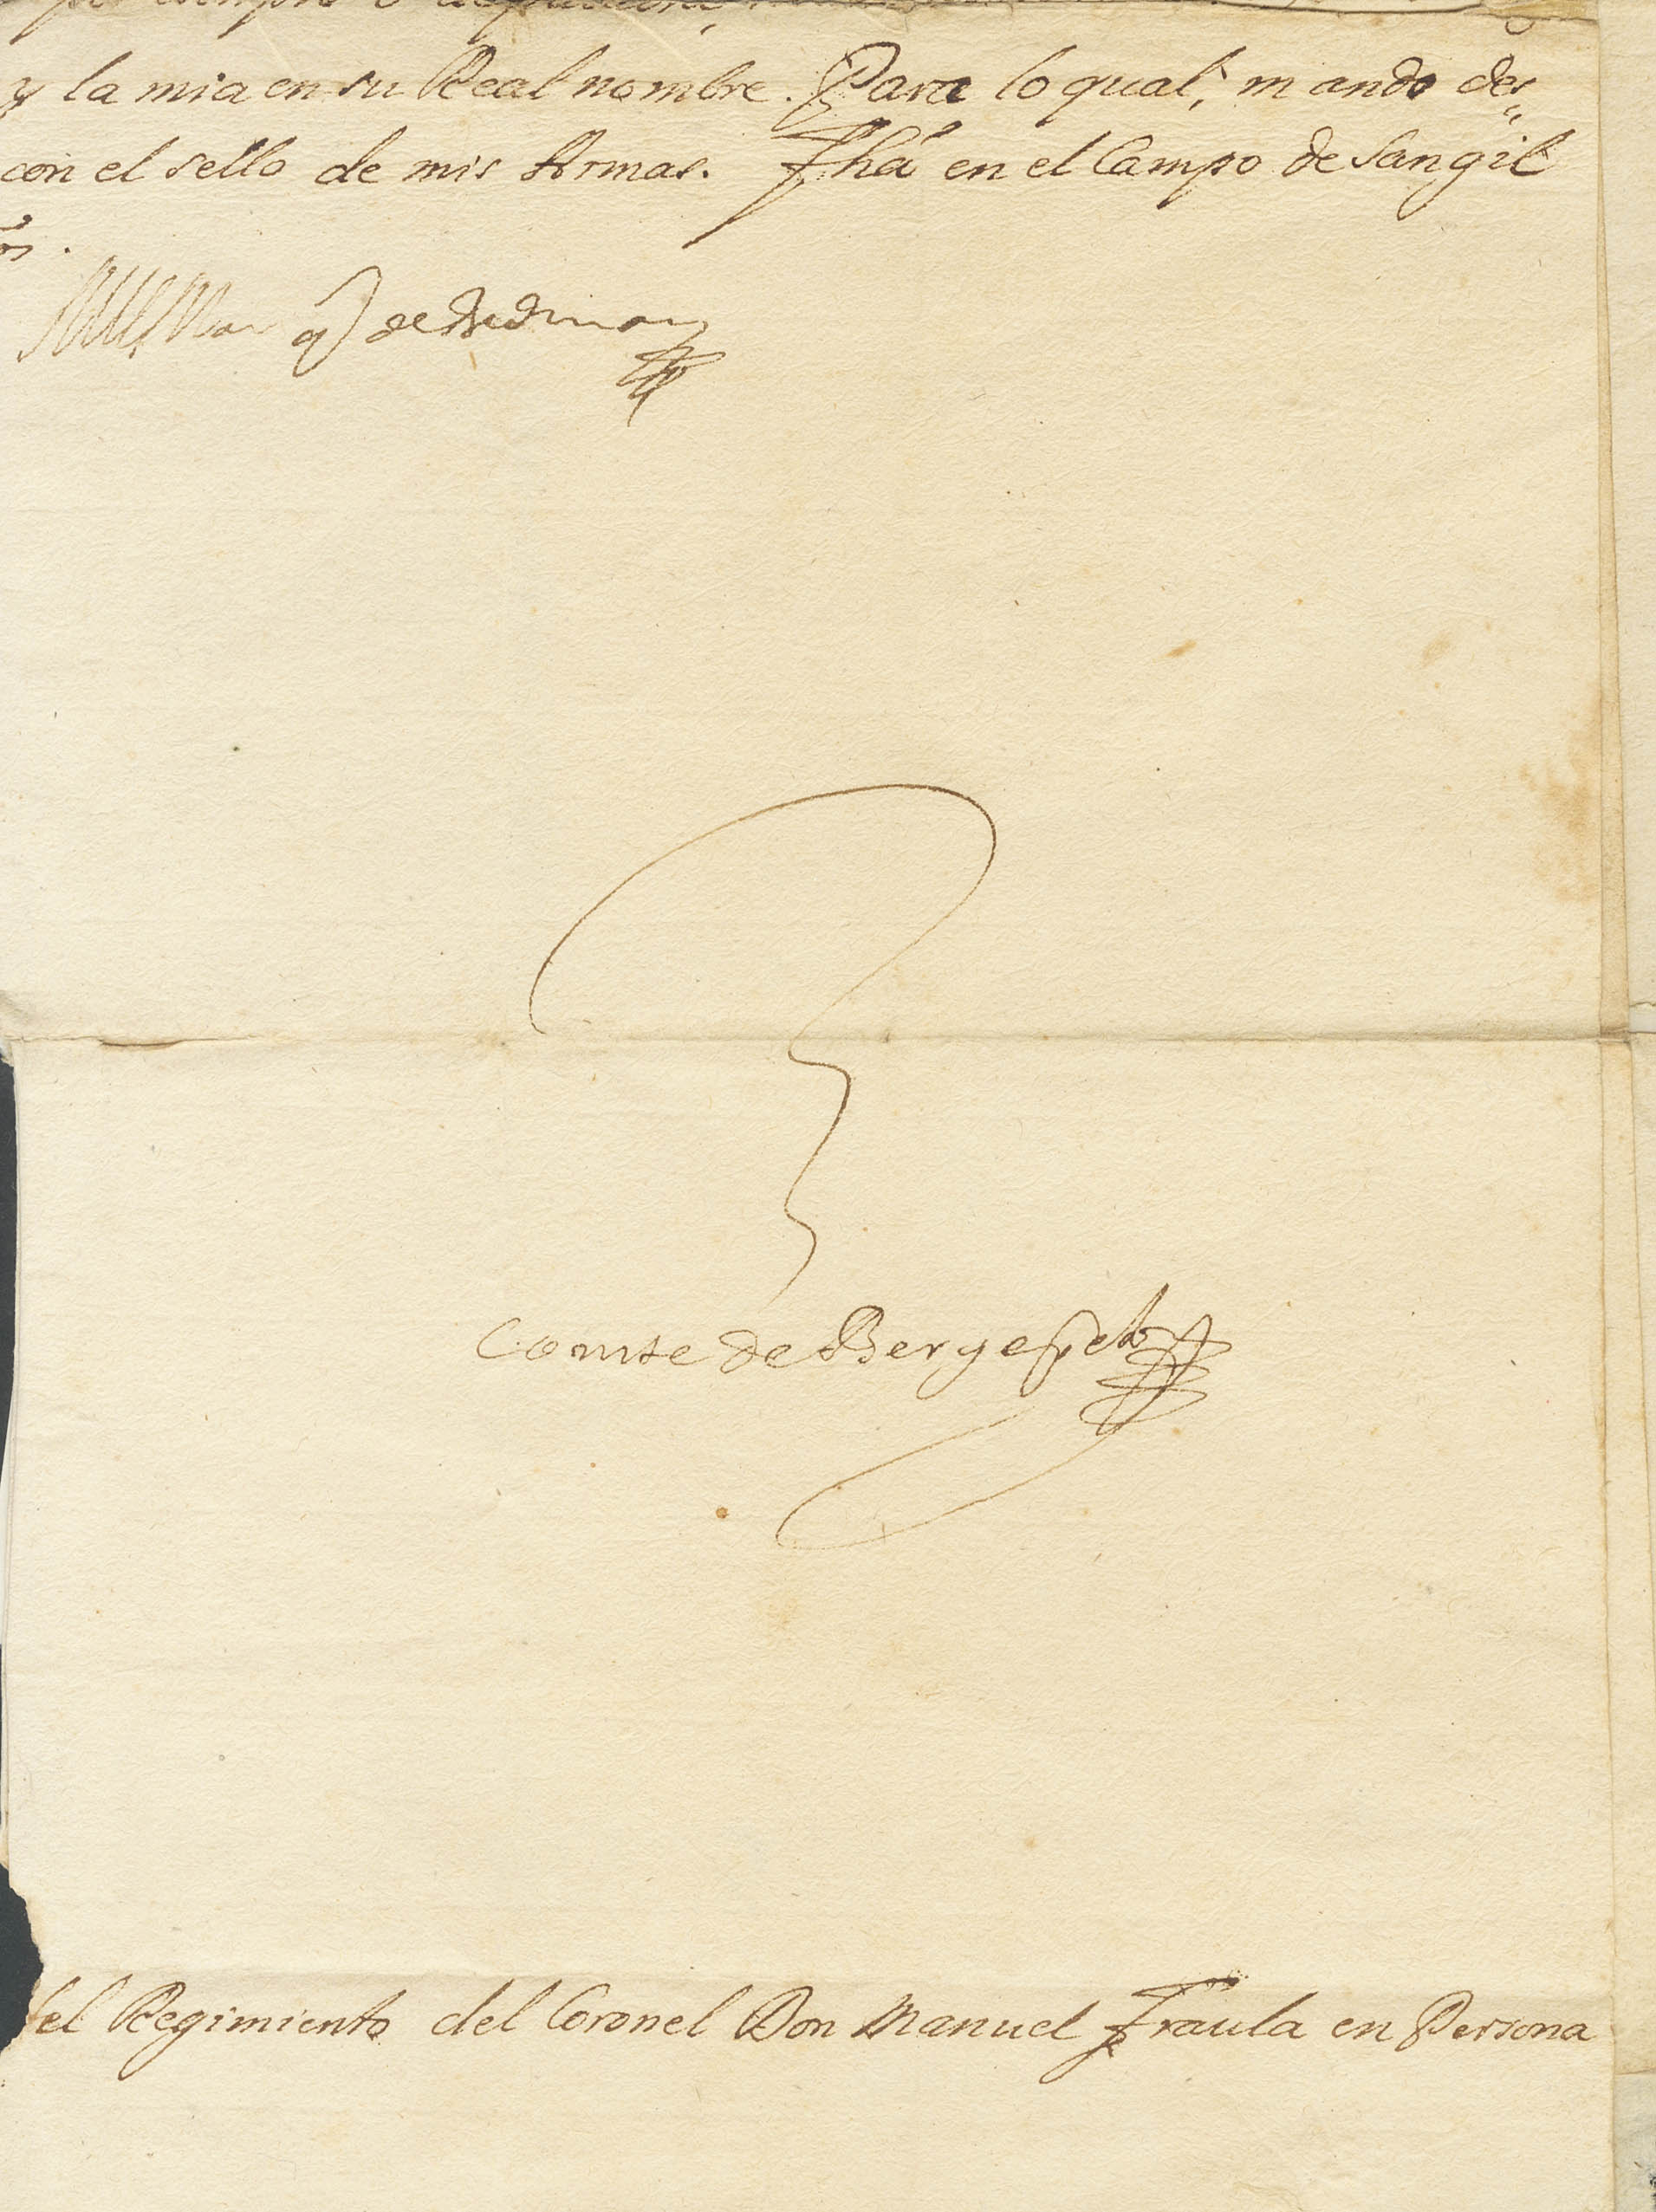 por siempre o
y la mia en su Real nombre. Para lo qual, mando des=
con el sello de mis Armas. fha en el Campo de Sangil
os.
Marq de Bedmar
Comte de Bergeyck
del Regimiento del Coronel Don Manuel Fraula en Persona